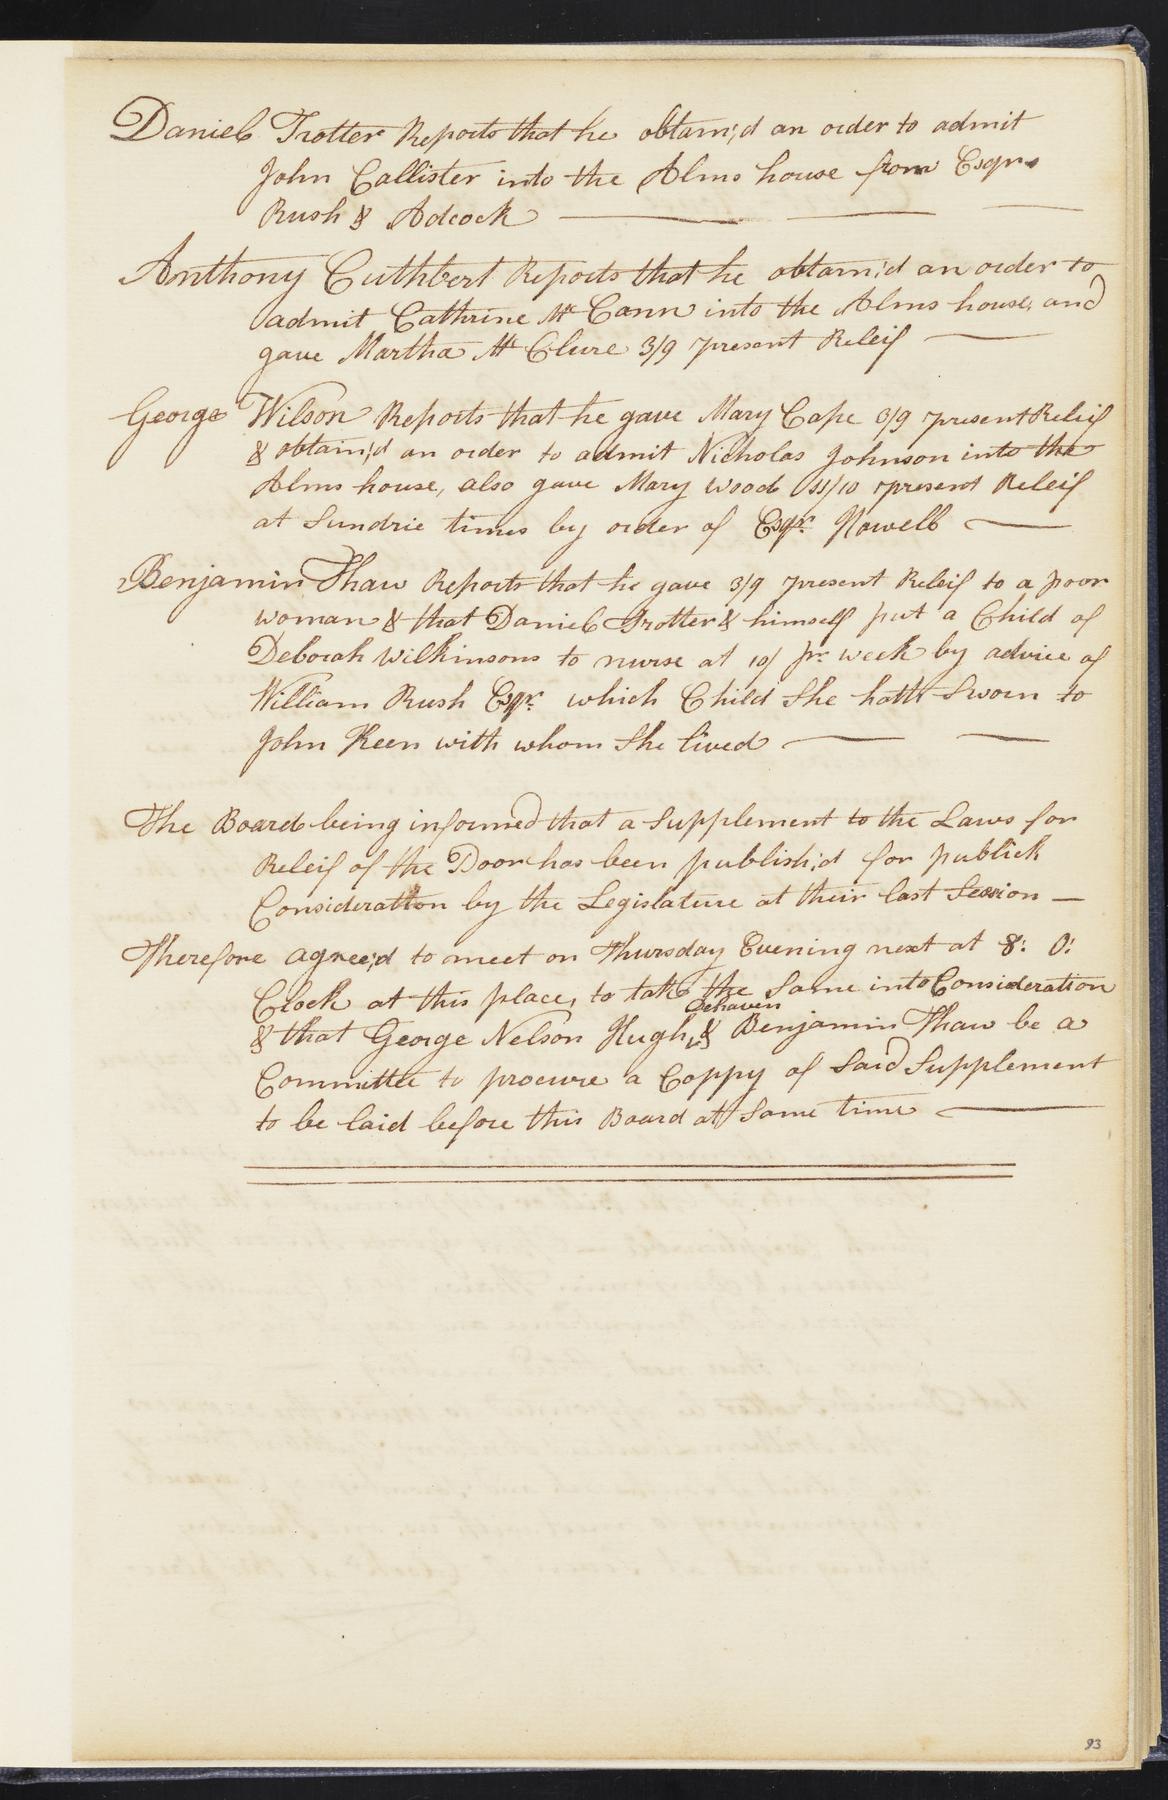 Daniel Trotter Reports that he obtain'd an order to admit
John Callister into the Alms house from Esqrs
Rush & Adcock
Anthony Cuthbert Reports that he obtain'd an order to
admit Cathrine Mc Cann into the Alms house, and
gave Martha Mc Clure 3/9 present Releif
George Wilson Reports that he gave Mary Cape 3/9 present Releif
& obtain'd an order to admit Nicholas Johnson into the
Alms house, also gave Mary Wood 11/10 present Releif
at Sundrie times by order of Esqr. Nowell
Benjamin Thaw Reports that he gave 3/9 present Releif to a poor
woman & that Daniel Trotter & himself put a Child of
Deborah Wilkinsons to nurse at 10/ pr week by advice of
William Rush Esqr. which Child She hath Sworn to
John Keen with whom She lived
The Board being informed that a Supplement to the Laws for
Releif of the Poor has been publish'd for publick
Consideration by the Legislature at their last Session —
Therefore agree'd to meet on Thursday Evening next at 8: O:
Clock at this place, to take the Same into Consideration
Dehaven
& that George Nelson Hugh, & Benjamin Thaw be a
Committee to procure a Coppy of Said Supplement
to be laid before this Board at Same time
93